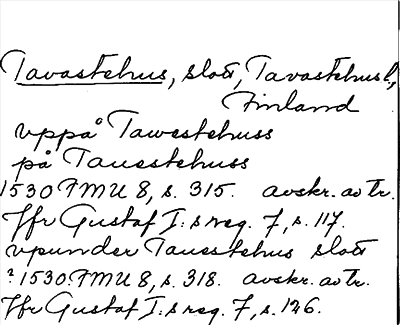 Tavastehus, slott, Tavastehus l,
Finland
vppå Tawestehuss
på Tauestehuss
1530 FMU 8, s. 315. avskr. av tr.
Jfr Gustaf I:s reg. 7, s. 117.
vpunder Tauestehus slott
? 1530 FMU 8, s. 318. avskr. av tr.
Jfr Gustaf I:s reg. 7, s. 126.